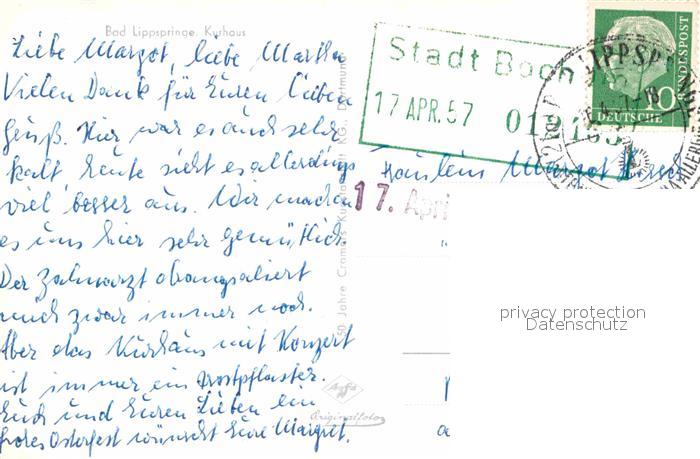 Bad Lippspringe. Kurhaus
Liebe Margot, liebe Martha
Vielen Dank für Euren lieben
Gruß. Hier war es auch sehr
kalt, heute sieht es allerdings
viel besser aus. Wir machen
es uns hier sehr gemütlich.
Der Zahnarzt
mich zwar immer noch.
Aber das Kurhaus mit Konzert
ist immer ein Trostpflaster.
Euch und Euren Lieben ein
frohes Osterfest wünscht Eure Margret.
50 Jahre Cramers Kunstanstalt KG., Dortmund
Agfa
Originalfoto
Stadt Boch
17 APR. 57
LIPPSP
10
DEUTSCHE
BUNDESPOST
Fräulein Margot
17. Apri
privacy protection
Datenschutz